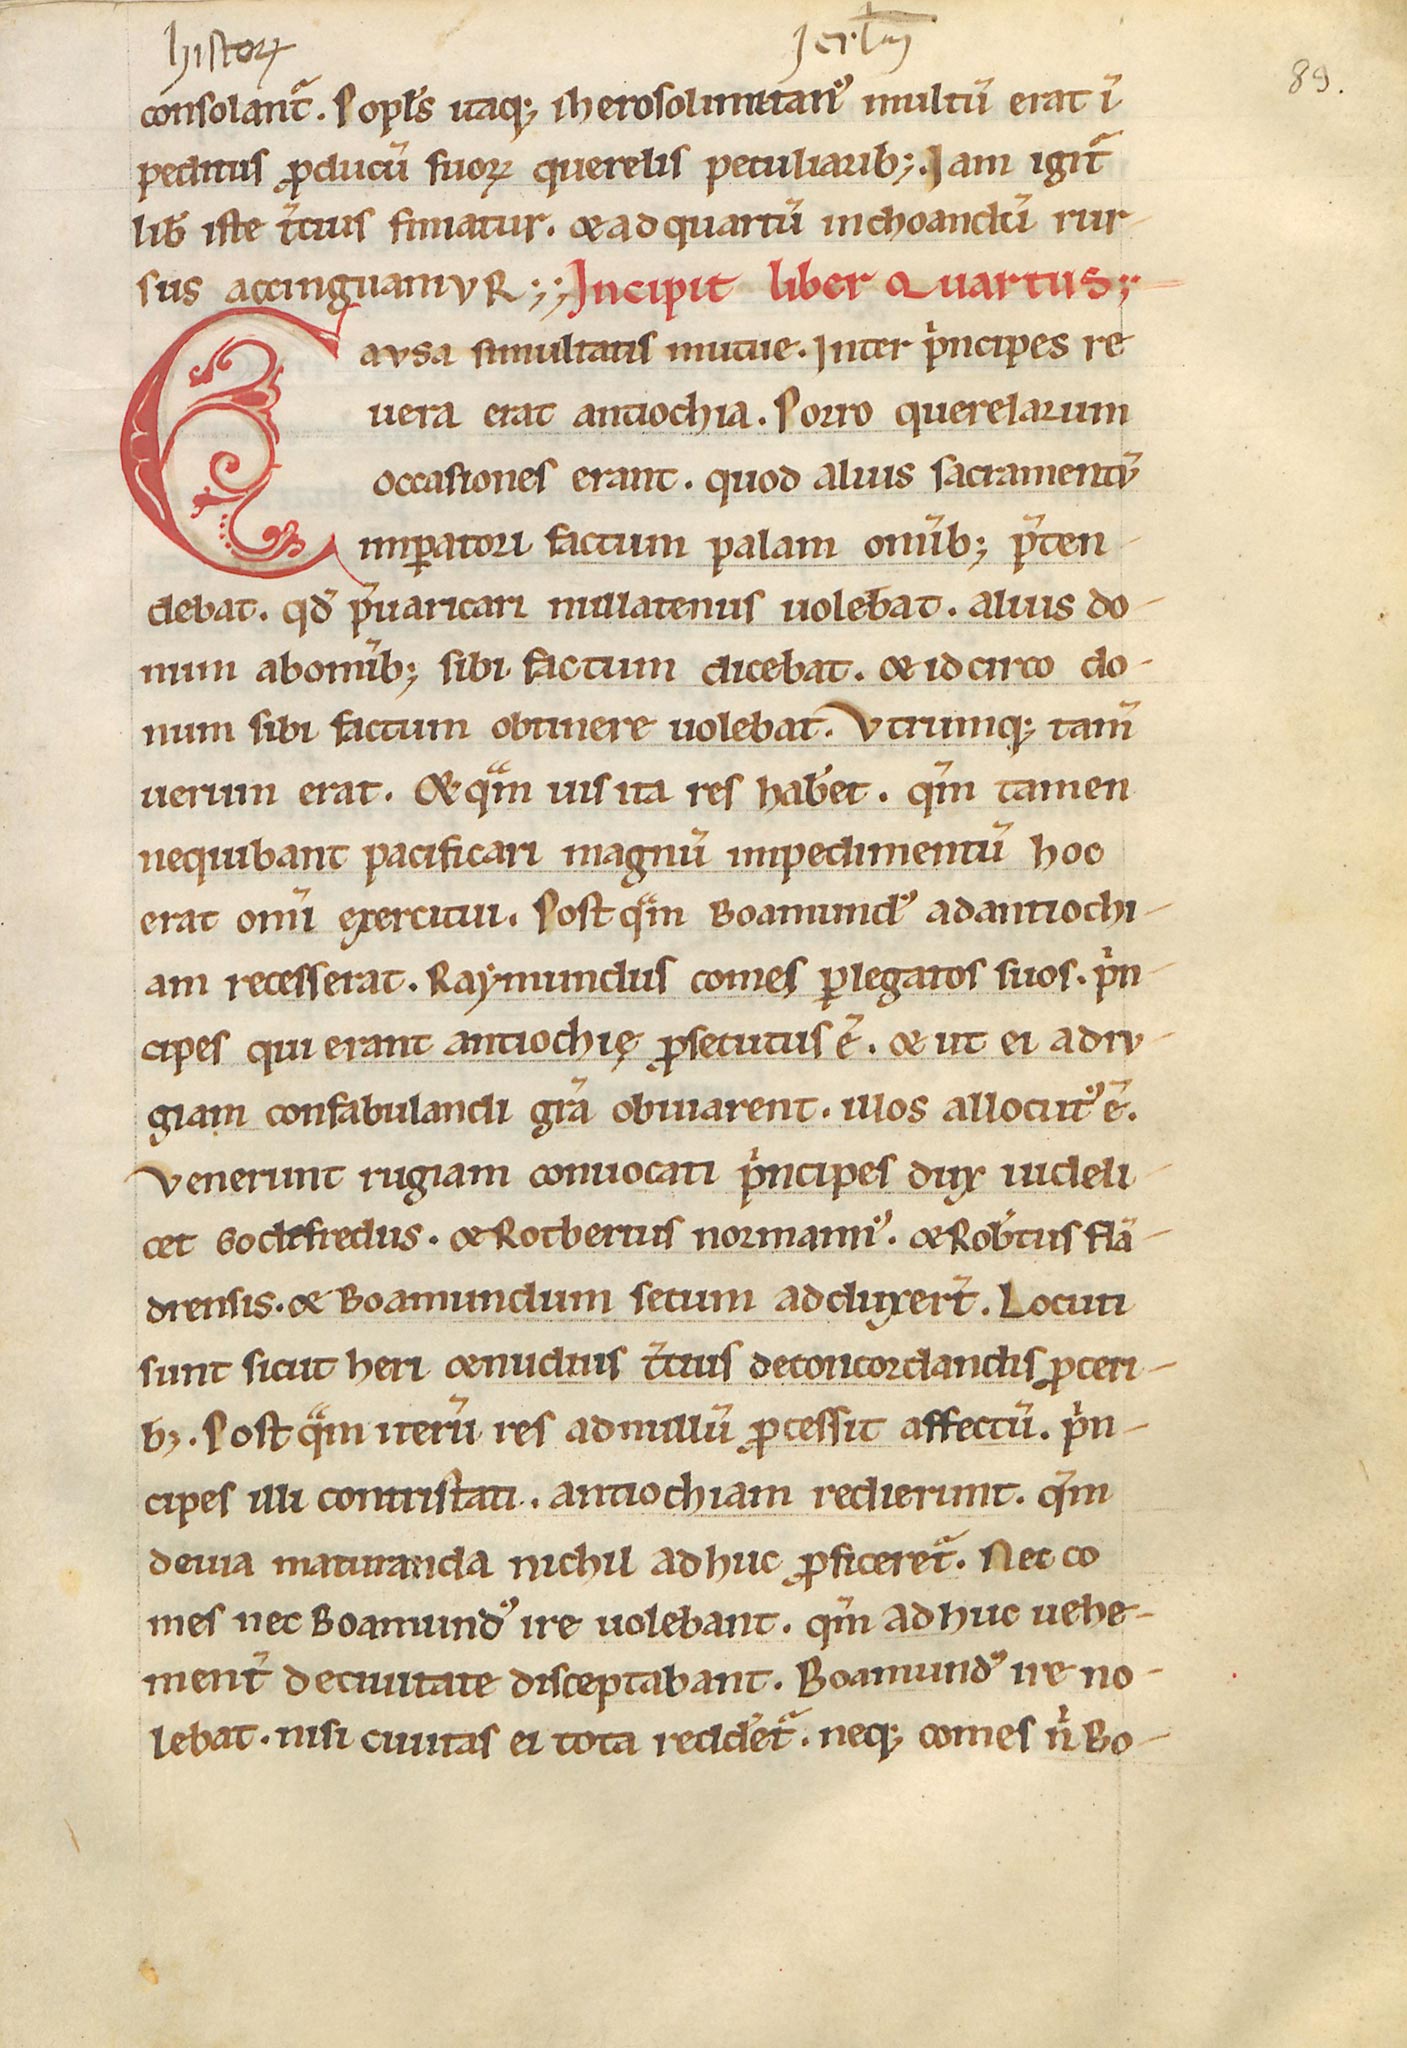 historꝝ Jerl̅m
89.
consolant᷑. Popl̅s itaqꝫ iherosolimitanꝰ multū erat ī
peditus ꝓ ducū suoꝝ querelis peculiaribꝫ. Jam igit᷑
lib̅ iste t̅cius finiatur. & ad quartū inchoandū rur-
sus accinguamuR. ;; Incipit liber Quartus;
Causa simultatis mutue. Inter p̅ncipes re
uera erat antiochia. Porro querelarum
occasiones erant. quod alius sacramentū
imꝑatori factum palam om̅ibꝫ p̅ten-
debat. qd̅ p̅uaricari nullatenus uolebat. alius do-
num ab om̅ibꝫ sibi factum dicebat. & idcirco do-
num sibi factum obtinere uolebat. Vtrumqꝫ tam̅
uerum erat. & qᷓm uis ita res hab̅et. qm̅ tamen
nequibant pacificari magnū impedimentū hoc
erat om̅i exercitui. Post qᷓm Boamundꝰ ad antiochi-
am recesserat. Raymundus comes ꝑ legatos suos. p̅n-
cipes qui erant antiochię ꝓsecutus ē. & ut ei ad ru-
giam confabulandi gr̅a obuiarent. illos allocutꝰ ē.
Venerunt rugiam conuocati p̅ncipes dux uideli-
cet Godefredus. & Rotbertus normannꝰ. & Rob̅tus flā-
drensis. & Boamundum secum adduxer̅t. Locuti
sunt sicut heri & nudius t̅cius de concordandis ꝓceri-
bꝫ. Post qᷓm iterū res ad nullū ꝓcessit affectū. p̅n-
cipes illi contristati. antiochiam redierunt. qm̅
de uia maturanda nichil adhuc ꝓficeret᷑. Nec co
mes nec Boamundꝰ ire uolebant. qm̅ adhuc uehe-
ment̅ de ciuitate disceptabant. Boamundꝰ ire no-
lebat. nisi ciuitas ei tota redd̅et᷑. neqꝫ comes n̅ Bo-